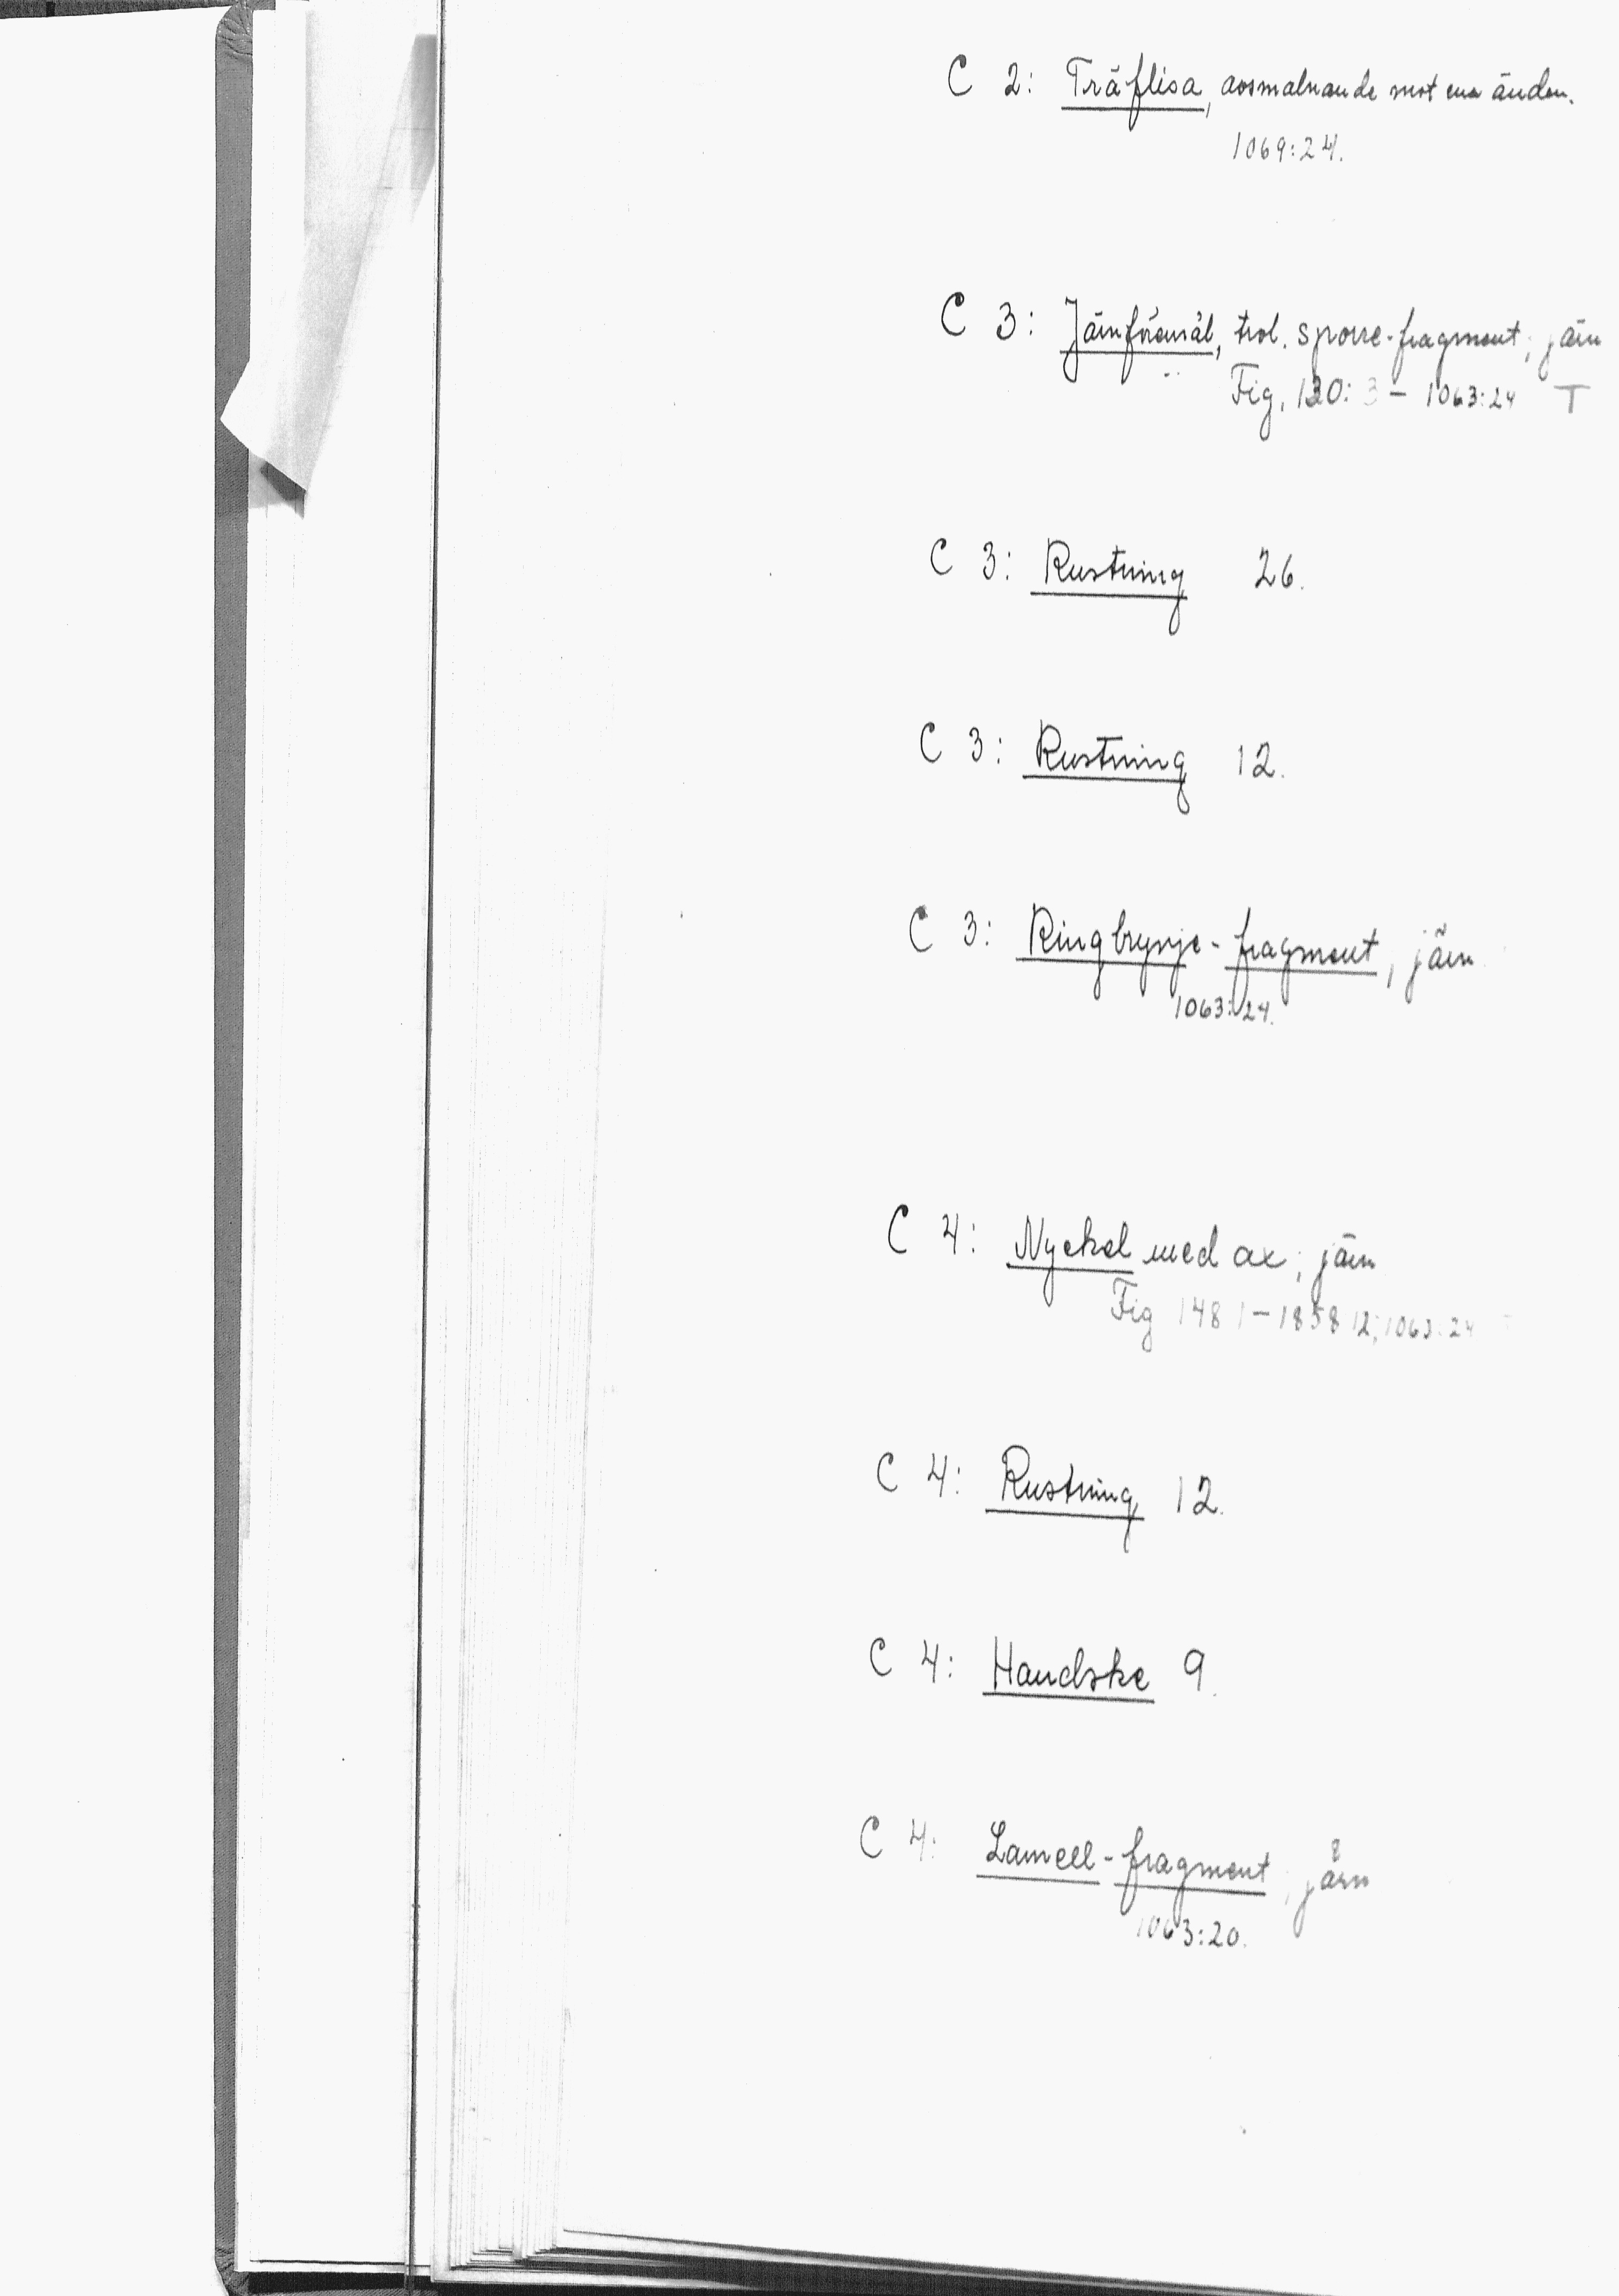 C 2: Träflisa, avsmalnande mot ena änden.
1069:24.
C 3: Järnföremål, trol. sporre-fragment; järn
Fig. 130:3 – 1063:24 T
C 3: Rustning 26.
C 3: Rustning 12.
C 3: Ringbrynje-fragment, järn
1063:24.
C 4: Nyckel med ax; järn
Fig 148 1 – 1858 12; 1063:24
C 4: Rustning 12.
C 4: Handske 9.
C 4: Lamell-fragment; järn
1063:20.